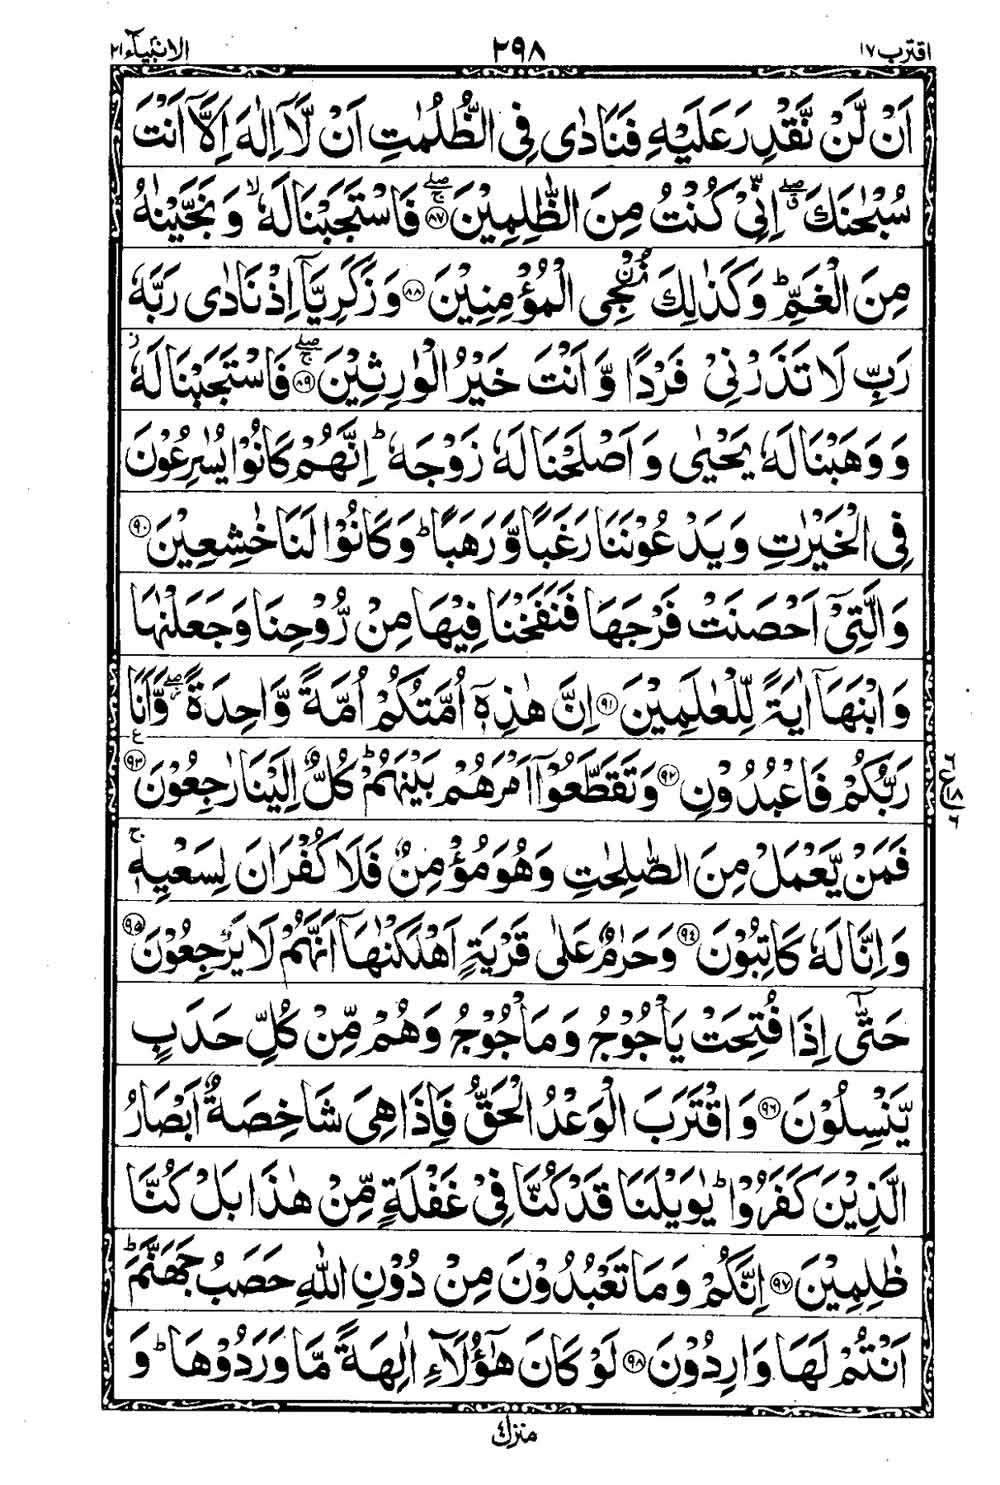 اقترب ١٧ ٢٩٨ الانبيآء ٢١
اَنۡ لَّنۡ نَّقۡدِرَ عَلَيۡهِ فَنَادٰى فِى الظُّلُمٰتِ اَنۡ لَّاۤ اِلٰهَ اِلَّاۤ اَنۡتَ
سُبۡحٰنَكَ ۖۗ اِنِّىۡ كُنۡتُ مِنَ الظّٰلِمِيۡنَ ۖۚ ﴿٨٧﴾ فَاسۡتَجَبۡنَا لَهٗ ۙ وَنَجَّيۡنٰهُ
مِنَ الۡغَمِّ ؕ وَكَذٰلِكَ نُـنۡجِى الۡمُؤۡمِنِيۡنَ ﴿٨٨﴾ وَزَكَرِيَّاۤ اِذۡ نَادٰى رَبَّهٗ
رَبِّ لَا تَذَرۡنِىۡ فَرۡدًا وَّاَنۡتَ خَيۡرُ الۡوٰرِثِيۡنَ ۖۚ ﴿٨٩﴾ فَاسۡتَجَبۡنَا لَهٗ ز
وَوَهَبۡنَا لَهٗ يَحۡيٰى وَاَصۡلَحۡنَا لَهٗ زَوۡجَهٗ ؕ اِنَّهُمۡ كَانُوۡا يُسٰرِعُوۡنَ
فِى الۡخَيۡرٰتِ وَيَدۡعُوۡنَنَا رَغَبًا وَّرَهَبًا ؕ وَكَانُوۡا لَنَا خٰشِعِيۡنَ ﴿٩٠﴾
وَالَّتِىۡۤ اَحۡصَنَتۡ فَرۡجَهَا فَنَفَخۡنَا فِيۡهَا مِنۡ رُّوۡحِنَا وَجَعَلۡنٰهَا
وَابۡنَهَاۤ اٰيَةً لِّلۡعٰلَمِيۡنَ ﴿٩١﴾ اِنَّ هٰذِهٖۤ اُمَّتُكُمۡ اُمَّةً وَّاحِدَةً ۖ وَّاَنَا
رَبُّكُمۡ فَاعۡبُدُوۡنِ ﴿٩٢﴾ وَتَقَطَّعُوۡۤا اَمۡرَهُمۡ بَيۡنَهُمۡ ؕ كُلٌّ اِلَيۡنَا رٰجِعُوۡنَ ع ﴿٩٣﴾
فَمَنۡ يَّعۡمَلۡ مِنَ الصّٰلِحٰتِ وَهُوَ مُؤۡمِنٌ فَلَا كُفۡرَانَ لِسَعۡيِهٖ ۚ
وَاِنَّا لَهٗ كَاتِبُوۡنَ ﴿٩٤﴾ وَحَرٰمٌ عَلٰى قَرۡيَةٍ اَهۡلَكۡنٰهَاۤ اَنَّهُمۡ لَا يَرۡجِعُوۡنَ ﴿٩٥﴾
حَتّٰٓى اِذَا فُتِحَتۡ يَاۡجُوۡجُ وَمَاۡجُوۡجُ وَهُمۡ مِّنۡ كُلِّ حَدَبٍ
يَّنۡسِلُوۡنَ ﴿٩٦﴾ وَاقۡتَرَبَ الۡوَعۡدُ الۡحَقُّ فَاِذَا هِىَ شَاخِصَةٌ اَبۡصَارُ
الَّذِيۡنَ كَفَرُوۡا ؕ يٰوَيۡلَنَا قَدۡ كُنَّا فِىۡ غَفۡلَةٍ مِّنۡ هٰذَا بَلۡ كُنَّا
ظٰلِمِيۡنَ ﴿٩٧﴾ اِنَّكُمۡ وَمَا تَعۡبُدُوۡنَ مِنۡ دُوۡنِ اللّٰهِ حَصَبُ جَهَنَّمَ ؕ
اَنۡتُمۡ لَهَا وَارِدُوۡنَ ﴿٩٨﴾ لَوۡ كَانَ هٰٓؤُلَاۤءِ اٰلِهَةً مَّا وَرَدُوۡهَا ؕ وَ
منزل ٤